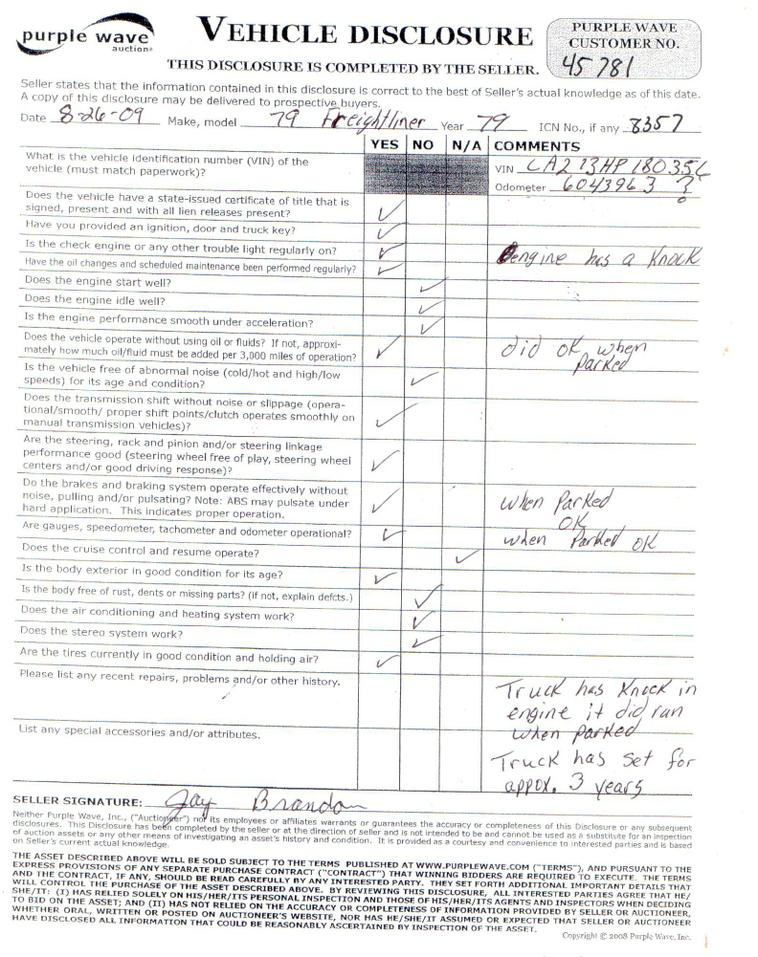 purple wave
auction®
VEHICLE DISCLOSURE
THIS DISCLOSURE IS COMPLETED BY THE SELLER.
PURPLE WAVE
CUSTOMER NO.
45781
Seller states that the information contained in this disclosure is correct to the best of Seller's actual knowledge as of this date.
A copy of this disclosure may be delivered to prospective buyers.
Date 8-26-09 Make, model 79 Freightliner Year 79 ICN No., if any 8357
YES NO N/A COMMENTS
What is the vehicle identification number (VIN) of the
vehicle (must match paperwork)?
VIN CA213HP180356
Odometer 6043963 ?
Does the vehicle have a state-issued certificate of title that is
signed, present and with all lien releases present? ✓
Have you provided an ignition, door and truck key? ✓
Is the check engine or any other trouble light regularly on? ✓ engine has a Knock
Have the oil changes and scheduled maintenance been performed regularly? ✓
Does the engine start well? ✓
Does the engine idle well? ✓
Is the engine performance smooth under acceleration? ✓
Does the vehicle operate without using oil or fluids? If not, approxi-
mately how much oil/fluid must be added per 3,000 miles of operation? ✓ did OK when
parked
Is the vehicle free of abnormal noise (cold/hot and high/low
speeds) for its age and condition? ✓
Does the transmission shift without noise or slippage (opera-
tional/smooth/ proper shift points/clutch operates smoothly on
manual transmission vehicles)? ✓
Are the steering, rack and pinion and/or steering linkage
performance good (steering wheel free of play, steering wheel
centers and/or good driving response)? ✓
Do the brakes and braking system operate effectively without
noise, pulling and/or pulsating? Note: ABS may pulsate under
hard application. This indicates proper operation. ✓ when Parked
OK
Are gauges, speedometer, tachometer and odometer operational? ✓ when Parked OK
Does the cruise control and resume operate? ✓
Is the body exterior in good condition for its age? ✓
Is the body free of rust, dents or missing parts? (if not, explain defcts.) ✓
Does the air conditioning and heating system work? ✓
Does the stereo system work? ✓
Are the tires currently in good condition and holding air? ✓
Please list any recent repairs, problems and/or other history.
Truck has Knock in
engine it did run
when parked
List any special accessories and/or attributes.
Truck has set for
appox. 3 years
SELLER SIGNATURE: Jay Brandon
Neither Purple Wave, Inc., ("Auctioneer") nor its employees or affiliates warrants or guarantees the accuracy or completeness of this Disclosure or any subsequent
disclosures. This Disclosure has been completed by the seller or at the direction of seller and is not intended to be and cannot be used as a substitute for an inspection
of auction assets or any other means of investigating an asset's history and condition. It is provided as a courtesy and convenience to interested parties and is based
on Seller's current actual knowledge.
THE ASSET DESCRIBED ABOVE WILL BE SOLD SUBJECT TO THE TERMS PUBLISHED AT WWW.PURPLEWAVE.COM ("TERMS"), AND PURSUANT TO THE
EXPRESS PROVISIONS OF ANY SEPARATE PURCHASE CONTRACT ("CONTRACT") THAT WINNING BIDDERS ARE REQUIRED TO EXECUTE. THE TERMS
AND THE CONTRACT, IF ANY, SHOULD BE READ CAREFULLY BY ANY INTERESTED PARTY. THEY SET FORTH ADDITIONAL IMPORTANT DETAILS THAT
WILL CONTROL THE PURCHASE OF THE ASSET DESCRIBED ABOVE. BY REVIEWING THIS DISCLOSURE, ALL INTERESTED PARTIES AGREE THAT HE/
SHE/IT: (I) HAS RELIED SOLELY ON HIS/HER/ITS PERSONAL INSPECTION AND THOSE OF HIS/HER/ITS AGENTS AND INSPECTORS WHEN DECIDING
TO BID ON THE ASSET; AND (II) HAS NOT RELIED ON THE ACCURACY OR COMPLETENESS OF INFORMATION PROVIDED BY SELLER OR AUCTIONEER,
WHETHER ORAL, WRITTEN OR POSTED ON AUCTIONEER'S WEBSITE, NOR HAS HE/SHE/IT ASSUMED OR EXPECTED THAT SELLER OR AUCTIONEER
HAVE DISCLOSED ALL INFORMATION THAT COULD BE REASONABLY ASCERTAINED BY INSPECTION OF THE ASSET.
Copyright © 2008 Purple Wave, Inc.